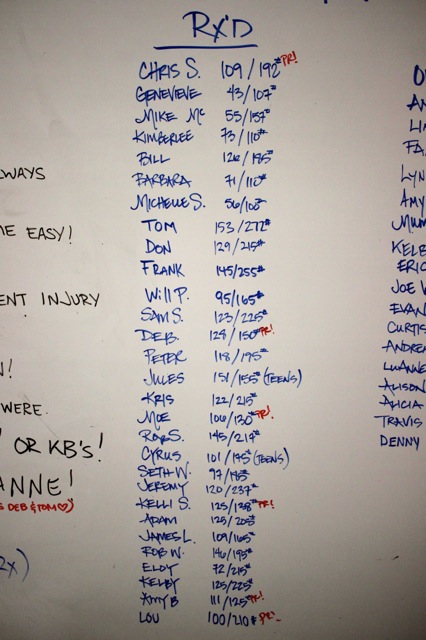 RX'D
CHRIS S. 109/192# PR!
GENEVIEVE 43/107#
MIKE Mc 55/157#
KIMBERLEE 73/110#
BILL 126/195#
BARBARA 71/110#
MICHELLE S. 56/103#
TOM 153/272#
DON 129/215#
FRANK 145/255#
WILL P. 95/165#
SAM S. 123/225#
DEB. 128/150# PR!
PETER 118/195#
JULES 151/155# (TEENS)
KRIS 122/215#
MOE 106/130# PR!
ROB S. 145/217#
CYRUS 101/175# (TEENS)
SETH W. 97/185#
JEREMY 120/237#
KELLI S. 125/138# PR!
ADAM 125/205#
JAMES L. 109/165#
ROB W. 146/195#
ELOY 72/215#
KELBY 125/225#
AMY B 111/125# PR!
LOU 100/210# PR!
WAYS
E EASY!
ENT INJURY
!
WERE.
! OR KB'S!
ANNE!
DEB & TOM ♡)
2x)
O
AM
LI
FA
LYN
AMY
MUM
KELB
ERIC
JOE W
EVAN
CURTIS
ANDRE
LUANNE
ALISON
ALICIA
TRAVIS
DENNY